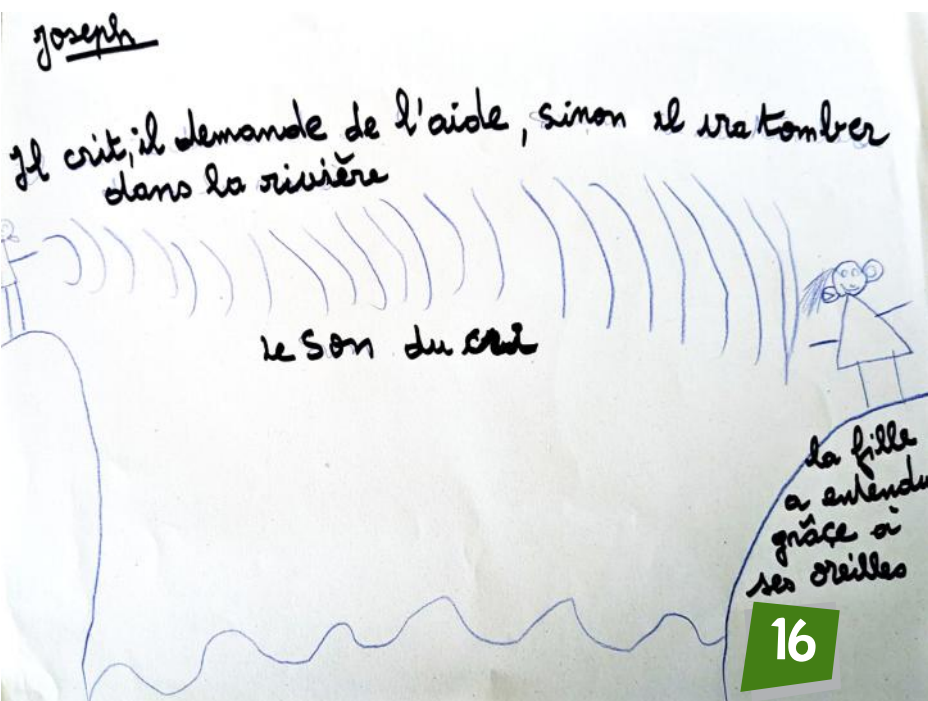 Joseph
Il crit, il demande de l'aide, sinon il ira tomber
dans la rivière
le son du cri
la fille
a entendu
grâce à
ses oreilles
16